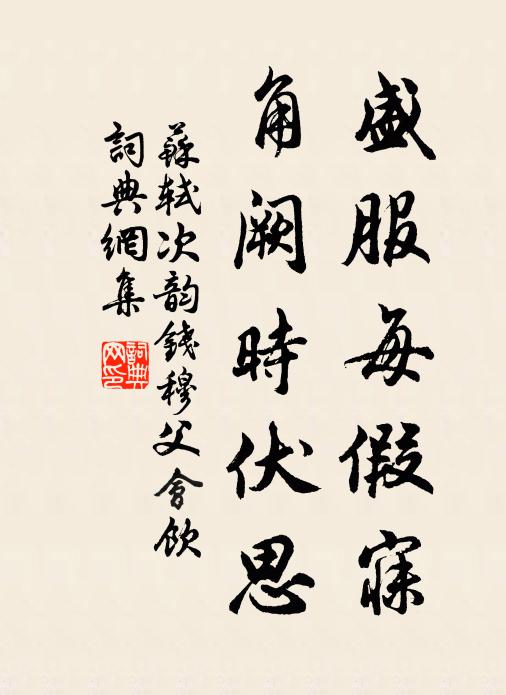 盛服每假寐
角闕時伏思
蘇軾次韵錢穆父會飲
詞典網集
詞典
网印